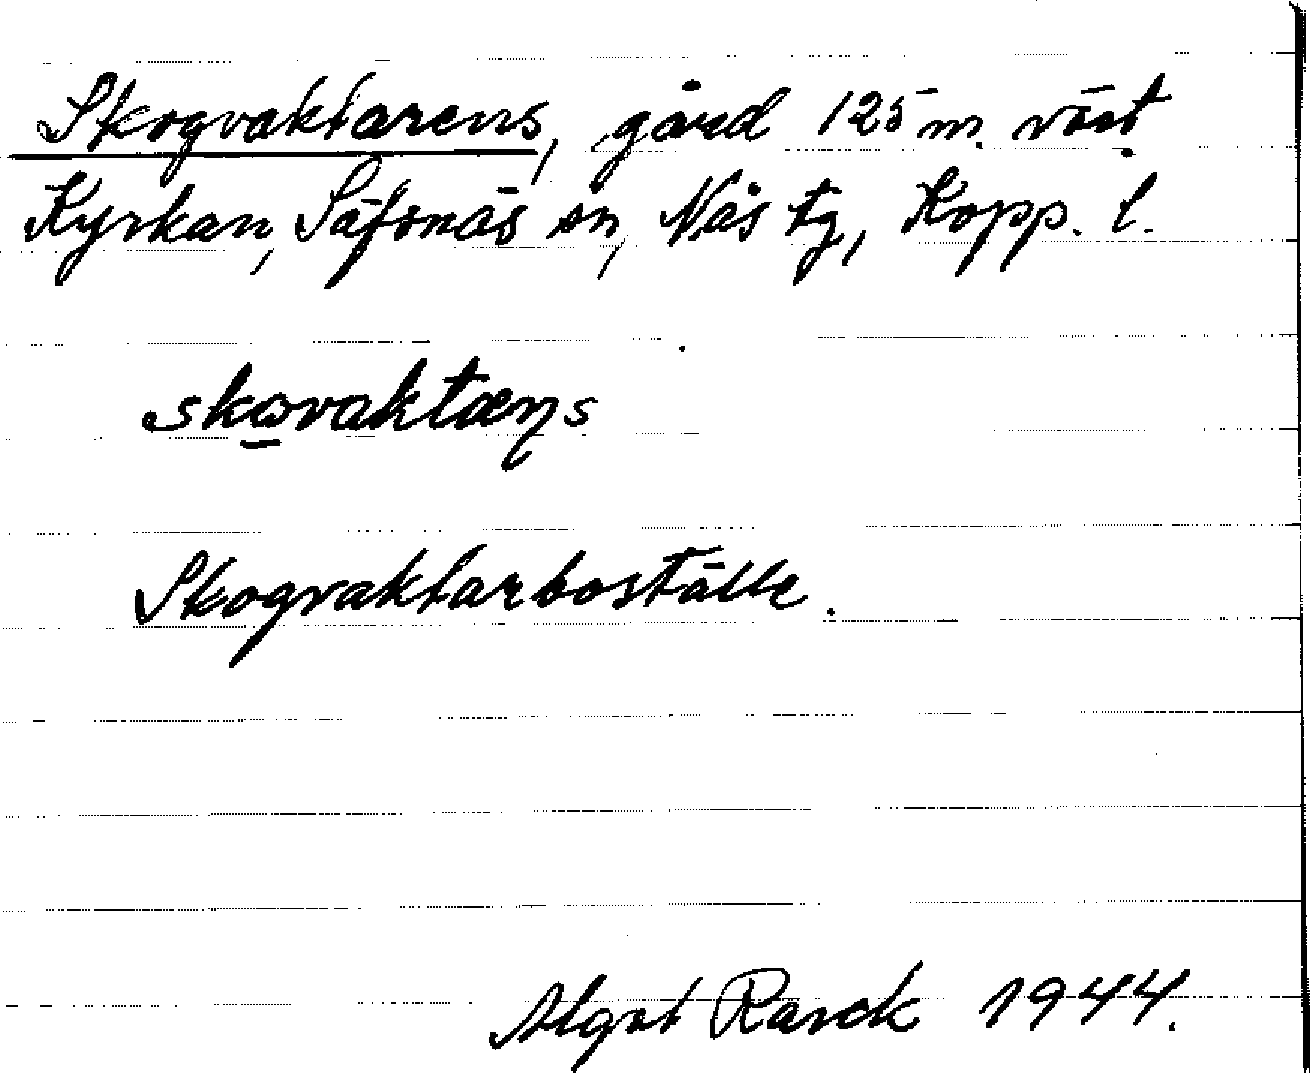 Skogvaktarens, gård 125 m. väst
Kyrkan, Säfsnäs sn, Nås tg, Kopp. l.
skωvaktæṇs
Skogvaktarboställe.
Algot Rarck 1944.